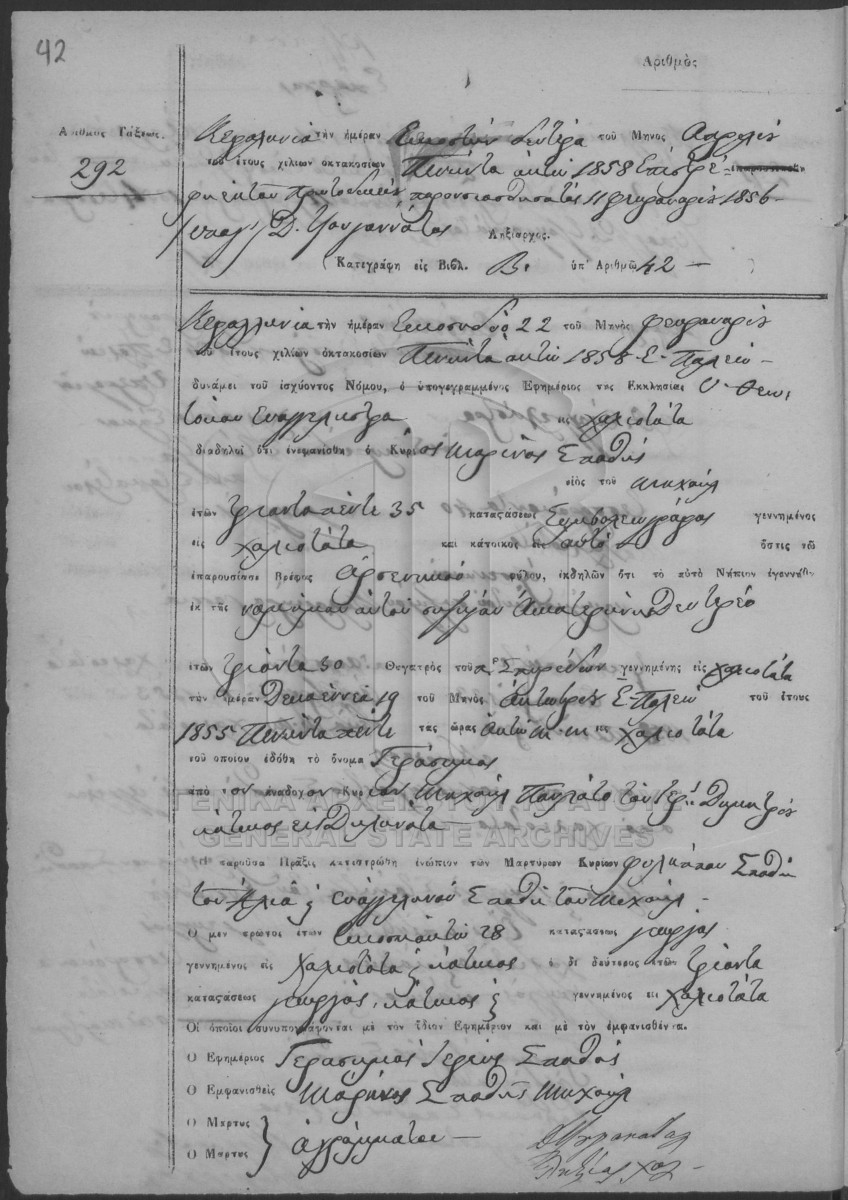 42
Ἀριθμὸς
Ἀριθμὸς Τάξεως.
292
Κεφαλληνία τὴν ἡμέραν Εικοστήν δευτέρα τοῦ Μηνὸς Απριλίου
τοῦ ἔτους χιλίων ὀκτακοσίων Πενῆντα οκτώ 1858 Επιστρέ-
φη εκ του Πρωτοδικείου παρουσιασθησα τας 11 φευρουαρίου 1856
Ληξίαρχος.
(Κατεγράφη εἰς Βιβλ. Β. ὑπ' Ἀριθμῶ 42 —
Κεφαλληνία τὴν ἡμέραν Εικοσιδύο 22 τοῦ Μηνὸς φευρουαρίου
τοῦ ἔτους χιλίων ὀκτακοσίων Πενῆντα οκτώ 1858 Ε. Παλαιόν —
δυνάμει τοῦ ἰσχύοντος Νόμου, ὁ ὑπογεγραμμένος Ἐφημέριος τῆς Ἐκκλησίας Υ. Θεο,
τόκου Ευαγγελιστρα εις χαλιοτάτα
διαδηλοῖ ὅτι ἐνεφανίσθη ὁ Κύριος Μαρίνος Σπαθής
υἱὸς τοῦ Μιχαήλ
ἐτῶν τριάντα πέντε 35 καταςάσεως Συμβολεογράφος γεννημένος
εἰς χαλιοτάτα καὶ κάτοικος εἰς αυτό ὅστις τῷ
ἐπαρουσίασε Βρέφος αρσενικού φύλου, ἐκδηλῶν ὅτι τὸ αὐτὸ Νήπιον ἐγεννήθη
ἐκ τῆς νομίμου αυτού συζύγου Αικατερίνη Δευτερέο
ἐτῶν τριάντα 30 Θυγατρὸς τοῦ Σπυρίδων γεννημένης εἰς χαλιοτάτα
τὴν ἡμέραν Δεκαεννέα 19 τοῦ Μηνὸς Οκτωβρίου Ε. Παλαιού τοῦ ἔτους
1855 Πενῆντα πέντε τὰς ὥρας οκτώ εις χαλιοτάτα
τοῦ ὁποίου ἐδόθη τὸ ὄνομα Γεράσιμος
ἀπὸ τὸν ἀνάδοχον Κύριον Μιχαήλ Παυλάτο του Δημητρίου
κάτοικος εις Διλινάτα
ΓΕΝΙΚΑ ΑΡΧΕΙΑ ΤΟΥ ΚΡΑΤΟΥΣ
GENERAL STATE ARCHIVES
Ἡ παροῦσα Πρᾶξις κατεστρώθη ἐνώπιον τῶν Μαρτύρων Κυρίων Σπαθή
του Ηλία ϗ Ευαγγελινού Σπαθή του Μιχαήλ —
Ὁ μὲν πρῶτος ἐτῶν εικοσιοκτώ 28 καταςάσεως γεωργός
γεννημένος εἰς Χαλιοτάτα ϗ κάτοικος ὁ δὲ δεύτερος ἐτῶν τριάντα
καταςάσεως γεωργός, κάτοικος ϗ γεννημένος εἰς χαλιοτάτα
Οἱ ὁποῖοι συνυπογράφονται μὲ τὸν ἴδιον Ἐφημέριον καὶ μὲ τὸν ἐμφανισθέντα.
Ὁ Ἐφημέριος Γεράσιμος Ιερεύς Σπαθής
Ὁ Ἐμφανισθεὶς Μαρίνος Σπαθής Μιχαήλ
Ὁ Μάρτυς
Ὁ Μάρτυς αγράμματοι —